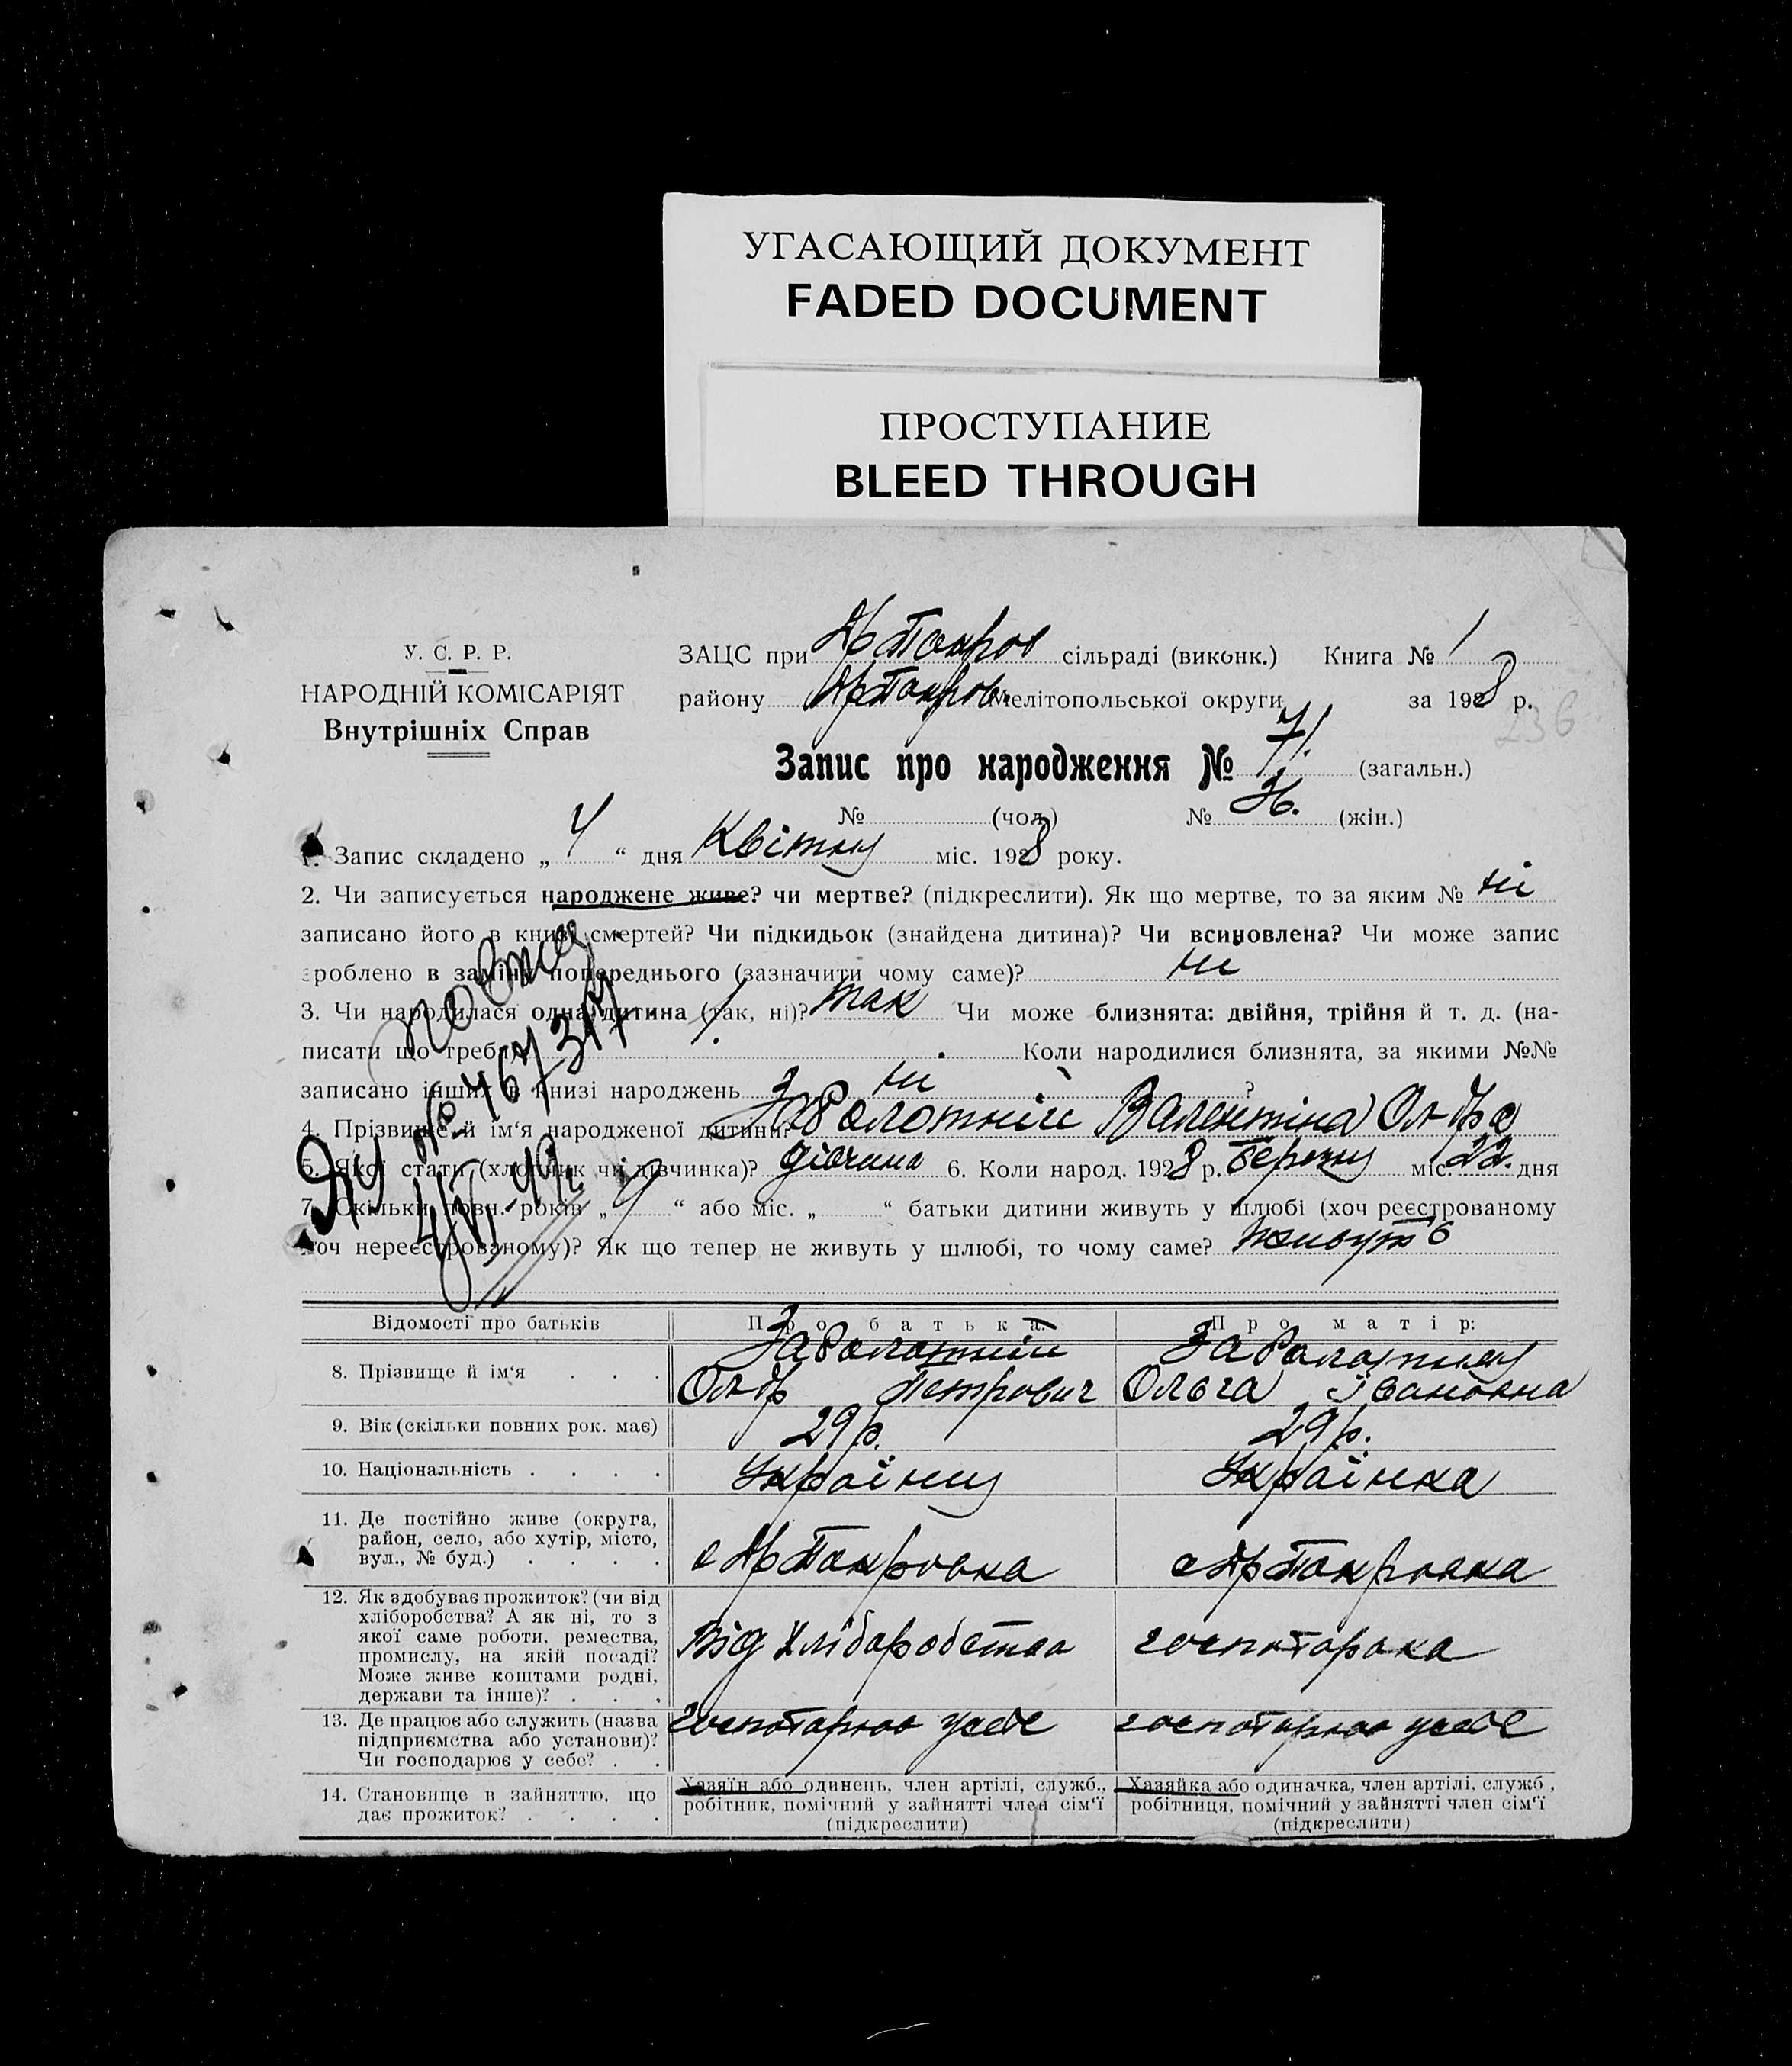 УГАСАЮЩИЙ ДОКУМЕНТ
FADED DOCUMENT
ПРОСТУПАНИЕ
BLEED THROUGH
У. С. Р. Р.
НАРОДНІЙ КОМІСАРІЯТ
Внутрішніх Справ
ЗАЦС при сільраді (виконк.) Книга № 1
району Мелітопольської округи за 1928 р.
236
Запис про народження № 71. (загальн.)
№ (чол.) № 36. (жін.)
1. Запис складено „ 4 “ дня Квітня міс. 1928 року.
2. Чи записується народжене живе? чи мертве? (підкреслити). Як що мертве, то за яким № ні
записано його в книзі смертей? Чи підкидьок (знайдена дитина)? Чи всиновлена? Чи може запис
зроблено в заміну попереднього (зазначити чому саме)? ні
3. Чи народилася одна дитина (так, ні)? так Чи може близнята: двійня, трійня й т. д. (на-
писати що треба) Коли народилися близнята, за якими №№
записано інших в книзі народжень ні ?
4. Прізвище й ім‘я народженої дитини? Заболотній Валентіна Ол-др
5. Якої стати (хлопчик чи дівчинка)? дівчина 6. Коли народ. 1928 р. Березня міс. 22. дня
7. Скільки повн. років „ 9 “ або міс. „ “ батьки дитини живуть у шлюбі (хоч реєстрованому
хоч нереєстрованому)? Як що тепер не живуть у шлюбі, то чому саме? живуть
Відомості про батьків Про батька: Про матір:
8. Прізвище й ім‘я . . . Заболотній Ол-др Петрович Заболотня Ольга Івановна
9. Вік (скільки повних рок. має) 29 р. 29 р.
10. Національність . . . . Українец Українка
11. Де постійно живе (округа,
район, село, або хутір, місто,
вул., № буд.) . . . .
12. Як здобуває прожиток? (чи від
хліборобства? А як ні, то з
якої саме роботи, ремества,
промислу, на якій посаді?
Може живе коштами родні,
держави та інше)? . . .
Від Хліборобства
13. Де працює або служить (назва
підприємства або установи)?
Чи господарює у себе? . .
14. Становище в зайняттю, що
дає прожиток? . . . .
Хазяїн або одинець, член артілі, служб.,
робітник, помічний у зайнятті член сім‘ї
(підкреслити)
Хазяйка або одиначка, член артілі, служб.,
робітниця, помічний у зайнятті член сім‘ї
(підкреслити)